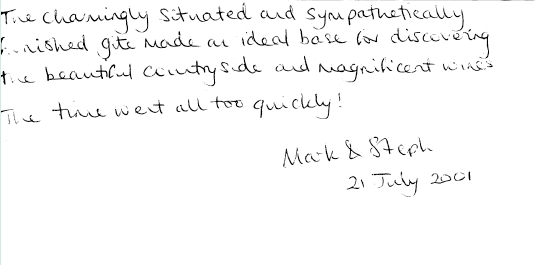 The charmingly situated and sympathetically
finished gite made an ideal base for discovering
the beautiful countryside and magnificent wines
The time went all too quickly!
Mark & Steph
21 July 2001